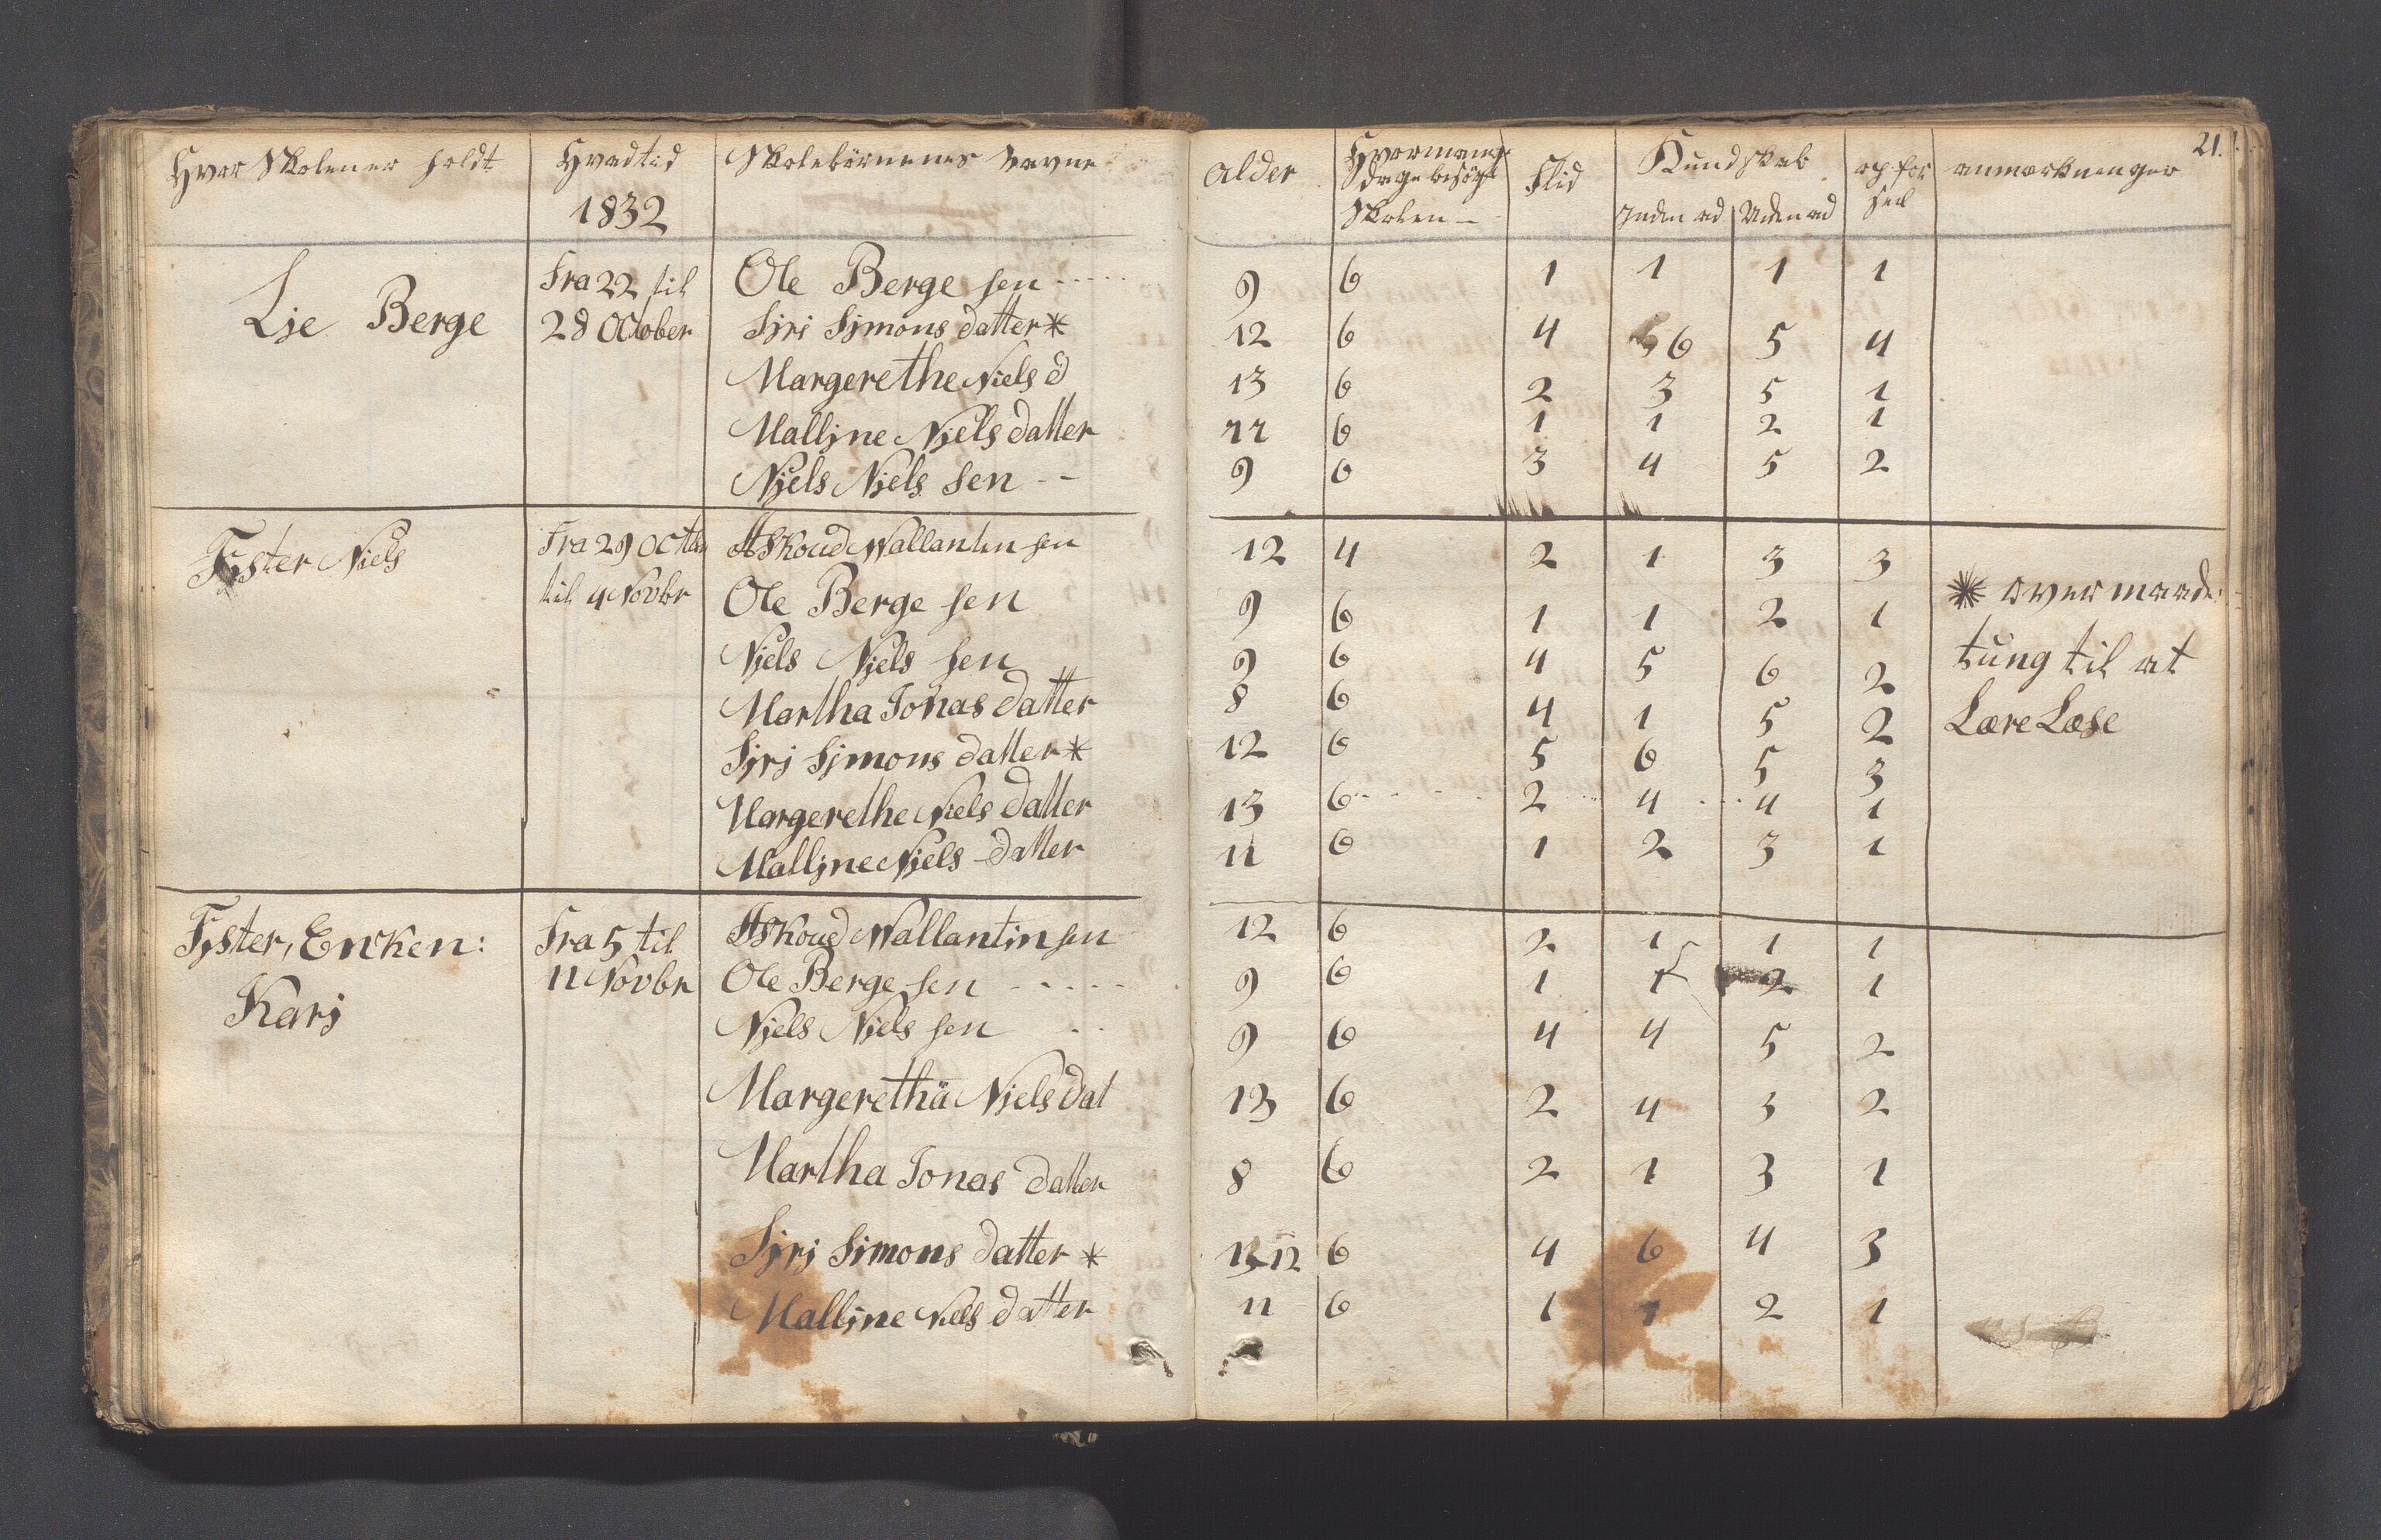 21.
Hvor Skolen er holdt | Hvad tid | Skolebörnenes Navne | alder | Hvormange | Flid | Kundskab | opfør | anmærkninger
1832 | dage besögt | sel
Skolen - | Inden ad | Uden ad
Lie Berge | Fra 22 til | Ole Berge sen | 9 | 6 | 1 | 1 | 1 | 1
28 October | Sjri Sjmons datter * | 12 | 6 | 4 | 6 | 5 | 4
Margerethe Niels d | 13 | 6 | 2 | 3 | 5 | 1
Malljne Njels datter | 11 | 6 | 1 | 1 | 2 | 1
Njels Njels sen -- | 9 | 6 | 3 | 4 | 5 | 2
Fjster Niels | Fra 29 Octbr | Askoud Wallantin sen | 12 | 4 | 2 | 1 | 3 | 3
til 4 Novbr | Ole Berge sen | 9 | 6 | 1 | 1 | 2 | 1 | * overmaade
Njels Njels sen | 9 | 6 | 4 | 5 | 6 | 2 | tung til at
Martha Jonas datter | 8 | 6 | 4 | 1 | 5 | 2 | Lære Læse
Sjrj Sjmons datter * | 12 | 6 | 5 | 6 | 5 | 3
Margerethe Niels datter | 13 | 6 | 2 | 4 | 4 | 1
Malljne Njels datter | 11 | 6 | 1 | 2 | 3 | 1
Fjster, Encken: | Fra 5 til | Askoud Wallantin sen | 12 | 6 | 2 | 1 | 1 | 1
Karj | 11 Novbr | Ole Berge sen | 9 | 6 | 1 | 1 | 2 | 1
Njels Njels sen | 9 | 6 | 4 | 4 | 5 | 2
Margerethä Njels dat | 13 | 6 | 2 | 4 | 3 | 2
Martha Jonas datter | 8 | 6 | 2 | 1 | 3 | 1
Sjrj Simons datter * | 12 | 6 | 4 | 6 | 4 | 3
Malljne Niels datter | 11 | 6 | 1 | 1 | 2 | 1